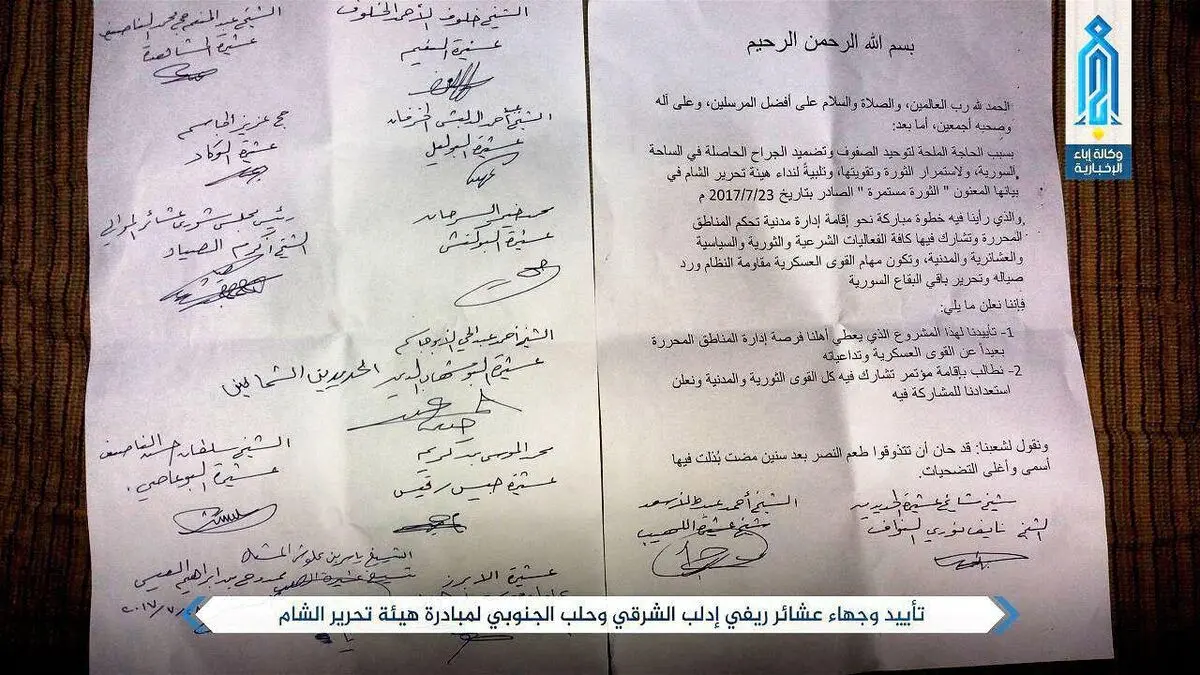 بسم الله الرحمن الرحيم
الحمد لله رب العالمين، والصلاة والسلام على أفضل المرسلين، وعلى آله
وصحبه أجمعين، أما بعد:
بسبب الحاجة الملحة لتوحيد الصفوف وتضميد الجراح الحاصلة في الساحة
السورية، ولاستمرار الثورة وتقويتها، وتلبيةً لنداء هيئة تحرير الشام في
بيانها المعنون " الثورة مستمرة " الصادر بتاريخ 2017/7/23 م
والذي رأينا فيه خطوة مباركة نحو إقامة إدارة مدنية تحكم المناطق
المحررة وتشارك فيها كافة الفعاليات الشرعية والثورية والسياسية
والعشائرية والمدنية، وتكون مهام القوى العسكرية مقاومة النظام ورد
صياله وتحرير باقي البقاع السورية
فإننا نعلن ما يلي:
1- تأييدنا لهذا المشروع الذي يعطي أهلنا فرصة إدارة المناطق المحررة
بعيداً عن القوى العسكرية وتداعياته
2- نطالب بإقامة مؤتمر تشارك فيه كل القوى الثورية والمدنية ونعلن
استعدادنا للمشاركة فيه
ونقول لشعبنا: قد حان أن تتذوقوا طعم النصر بعد سنين مضت بُذلت فيها
أسمى وأغلى التضحيات.
شيخ مشايخ عشيرة الحديدين
الشيخ نايف نوري النواف
الشيخ أحمد عبد الأسعد
شيخ عشيرة اللهيب
الشيخ خلوف الأحمد الخلوف
عشيرة النعيم
الشيخ أحمد
عشيرة البوليل
محمد خير السرحان
عشيرة
الشيخ أحمد عبد الحي
عشيرة
الحديدين الشماليين
محمد الموسى
عشيرة
عشيرة
الشيخ عبد المنعم
عشيرة
حج عزيز الجاسم
عشيرة الوكاد
رئيس مجلس شورى عشائر الموالي
الشيخ أكرم الصياد
الشيخ سلطان حسن
عشيرة البوعاصي
الشيخ ياسر بن علوش المشلة
ممدوح بن ابراهيم العيسى
وكالة إباء
الإخبارية
تأييد وجهاء عشائر ريفي إدلب الشرقي وحلب الجنوبي لمبادرة هيئة تحرير الشام